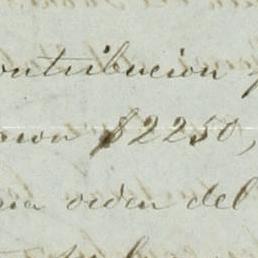 ontribucion
$2250,
na orden del